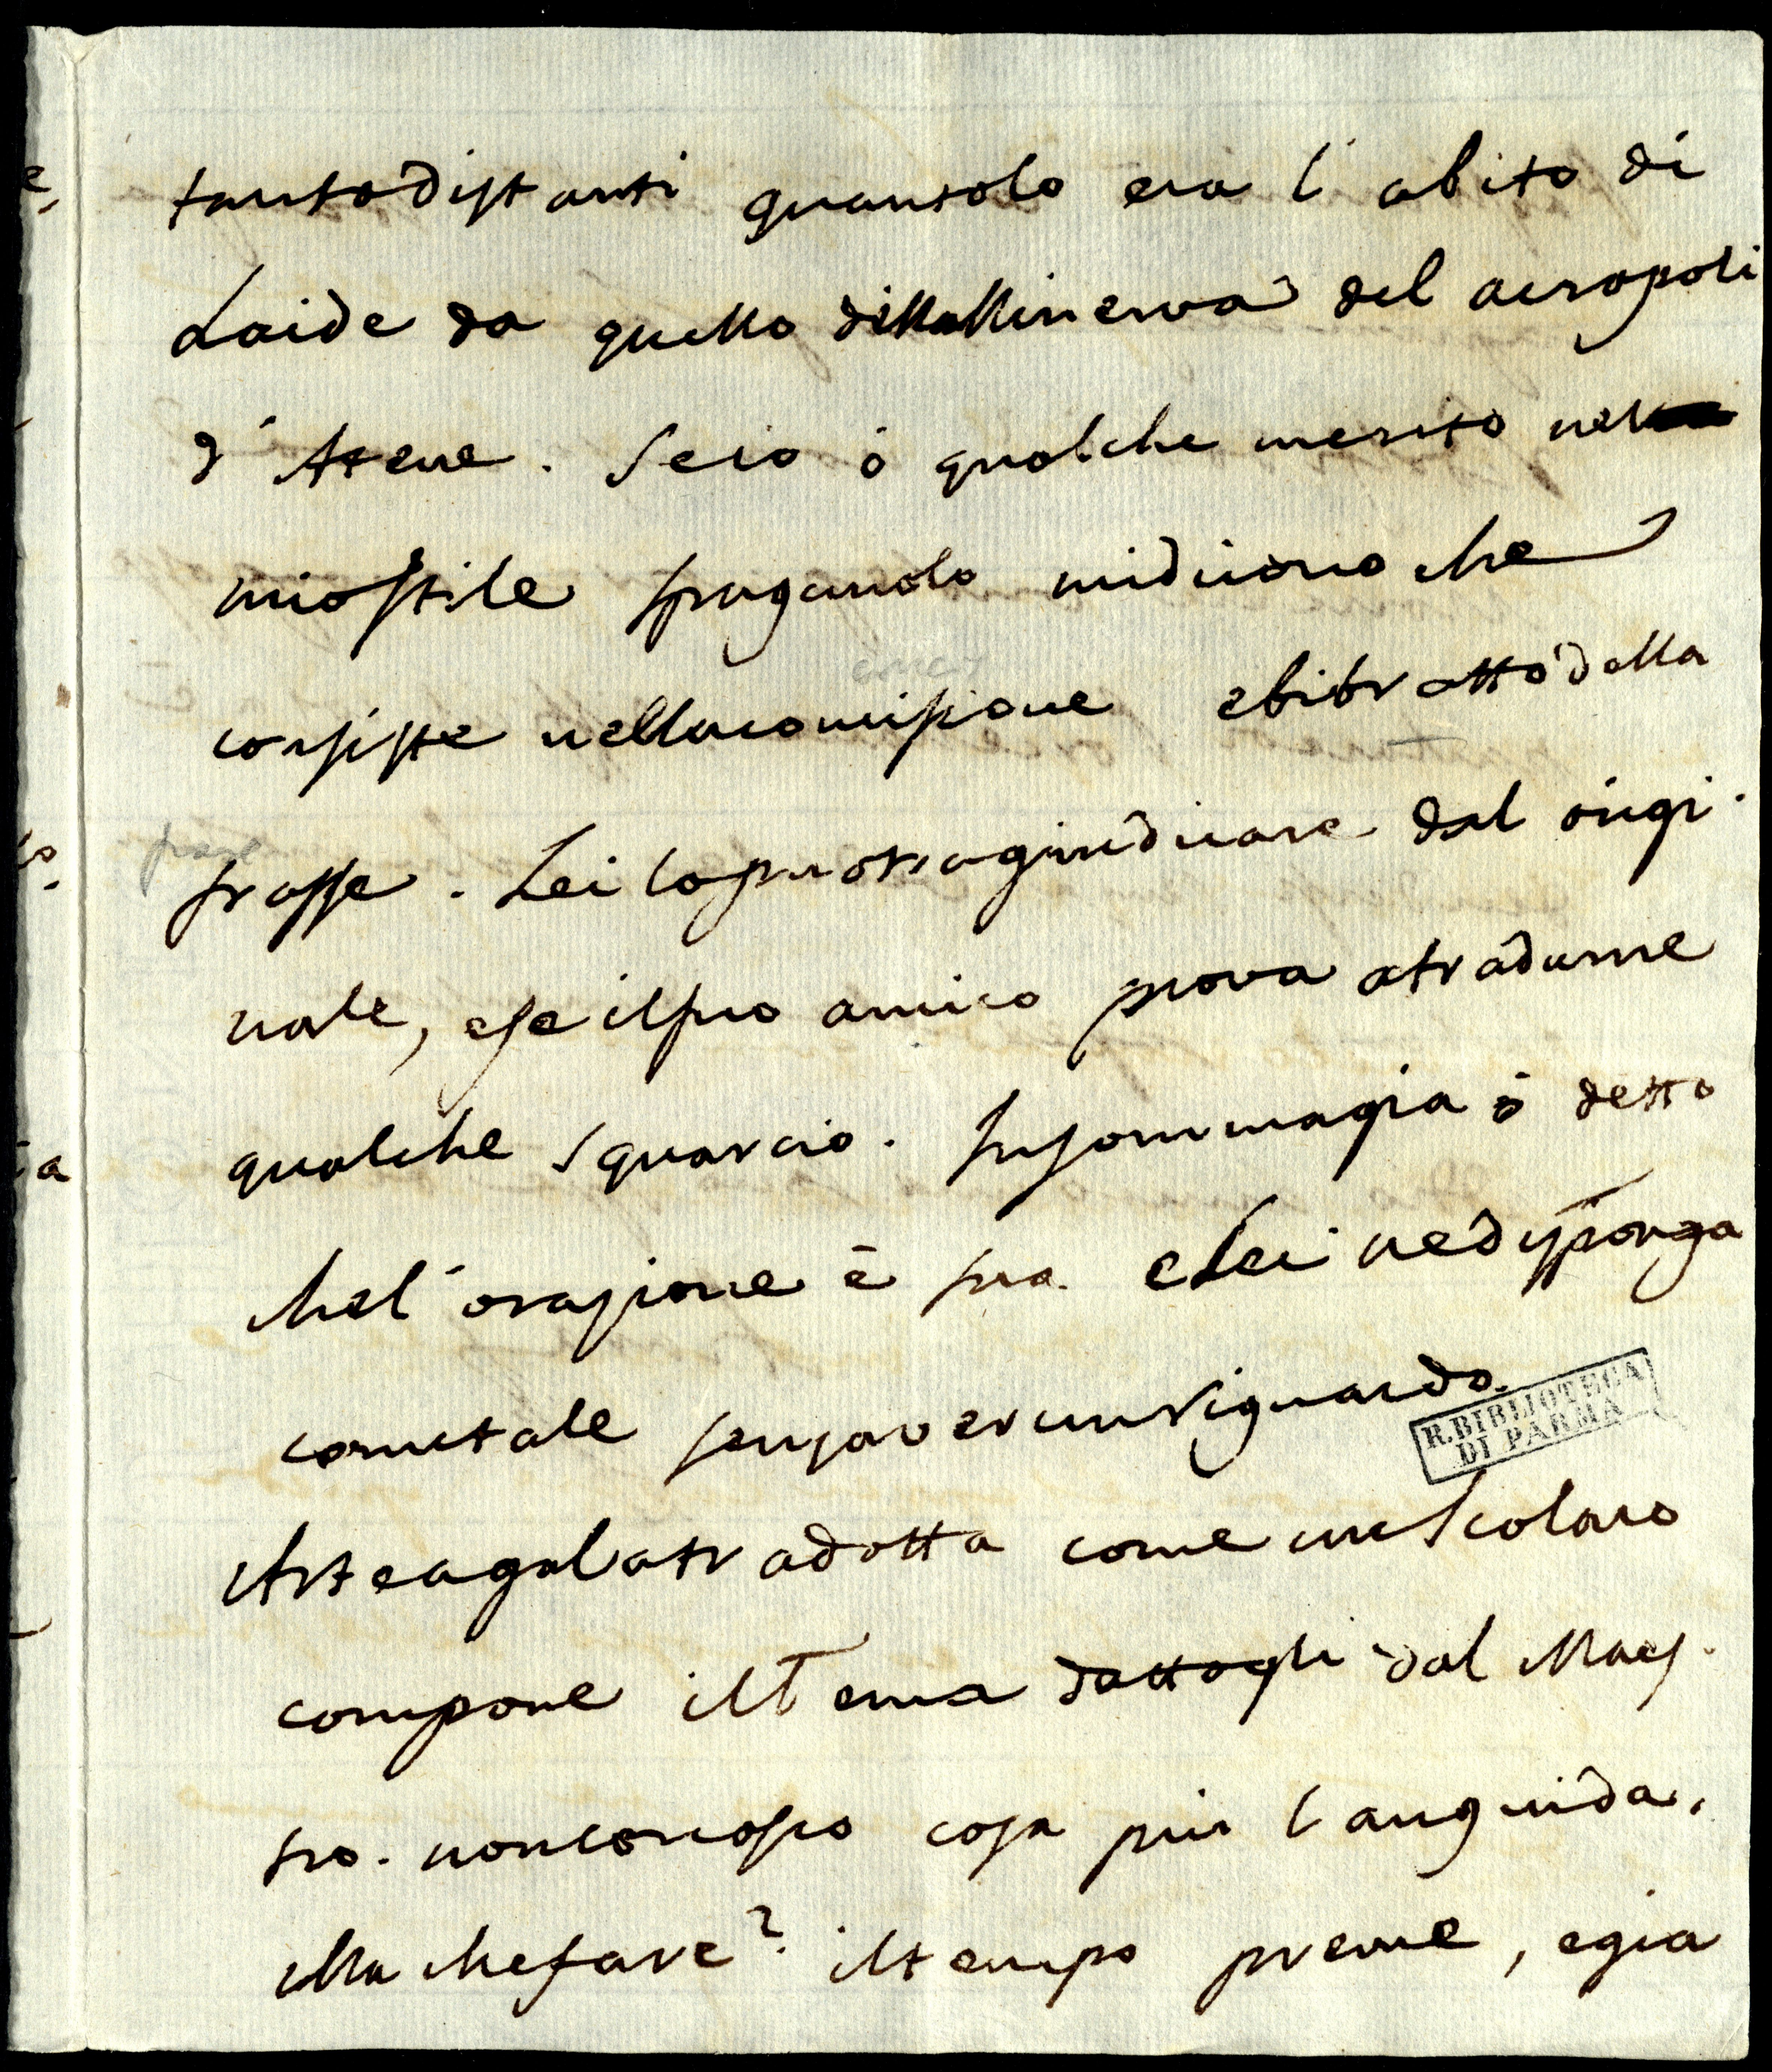 tantodistanti quantolo era l'abito di
Laide da quello dellaMinerva del acropoli
d'Atene. Seio ó qualche merito nel
miostile spaganolo midicono che
consiste nellaconcisione ebibrattó della
frasse. Lei lopuotragiudicare dal origi
nale, ese ilsuo amico prova atradurne
qualche squarcio. Insommagia ó detto
chel'orazione é sua. eLei nedisponga
cometale senzaverunriguardo.
R. BIBLIOTECA
DI PARMA
Arteagalatradotta come unoScolaro
compone ilTema dattogli dal Maes.
tro. nonconosco cosa piu languida.
Ma chefare? iltempo preme, egia